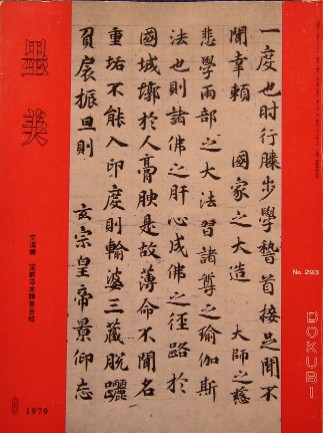 一度也時行膝步學稽首接足聞不
聞幸頼 國家之大造 大師之慈
悲學兩部之大法習諸尊之瑜伽斯
法也則諸佛之肝心成佛之徑路於
國城墎於人膏腴是故薄命不聞名
重垢不能入印度則輸婆三藏脱躧
負扆振旦則 玄宗皇帝景仰忘
墨美
空海書 宝厳寺本請来目録
No. 293
BOKUBI
8 1979